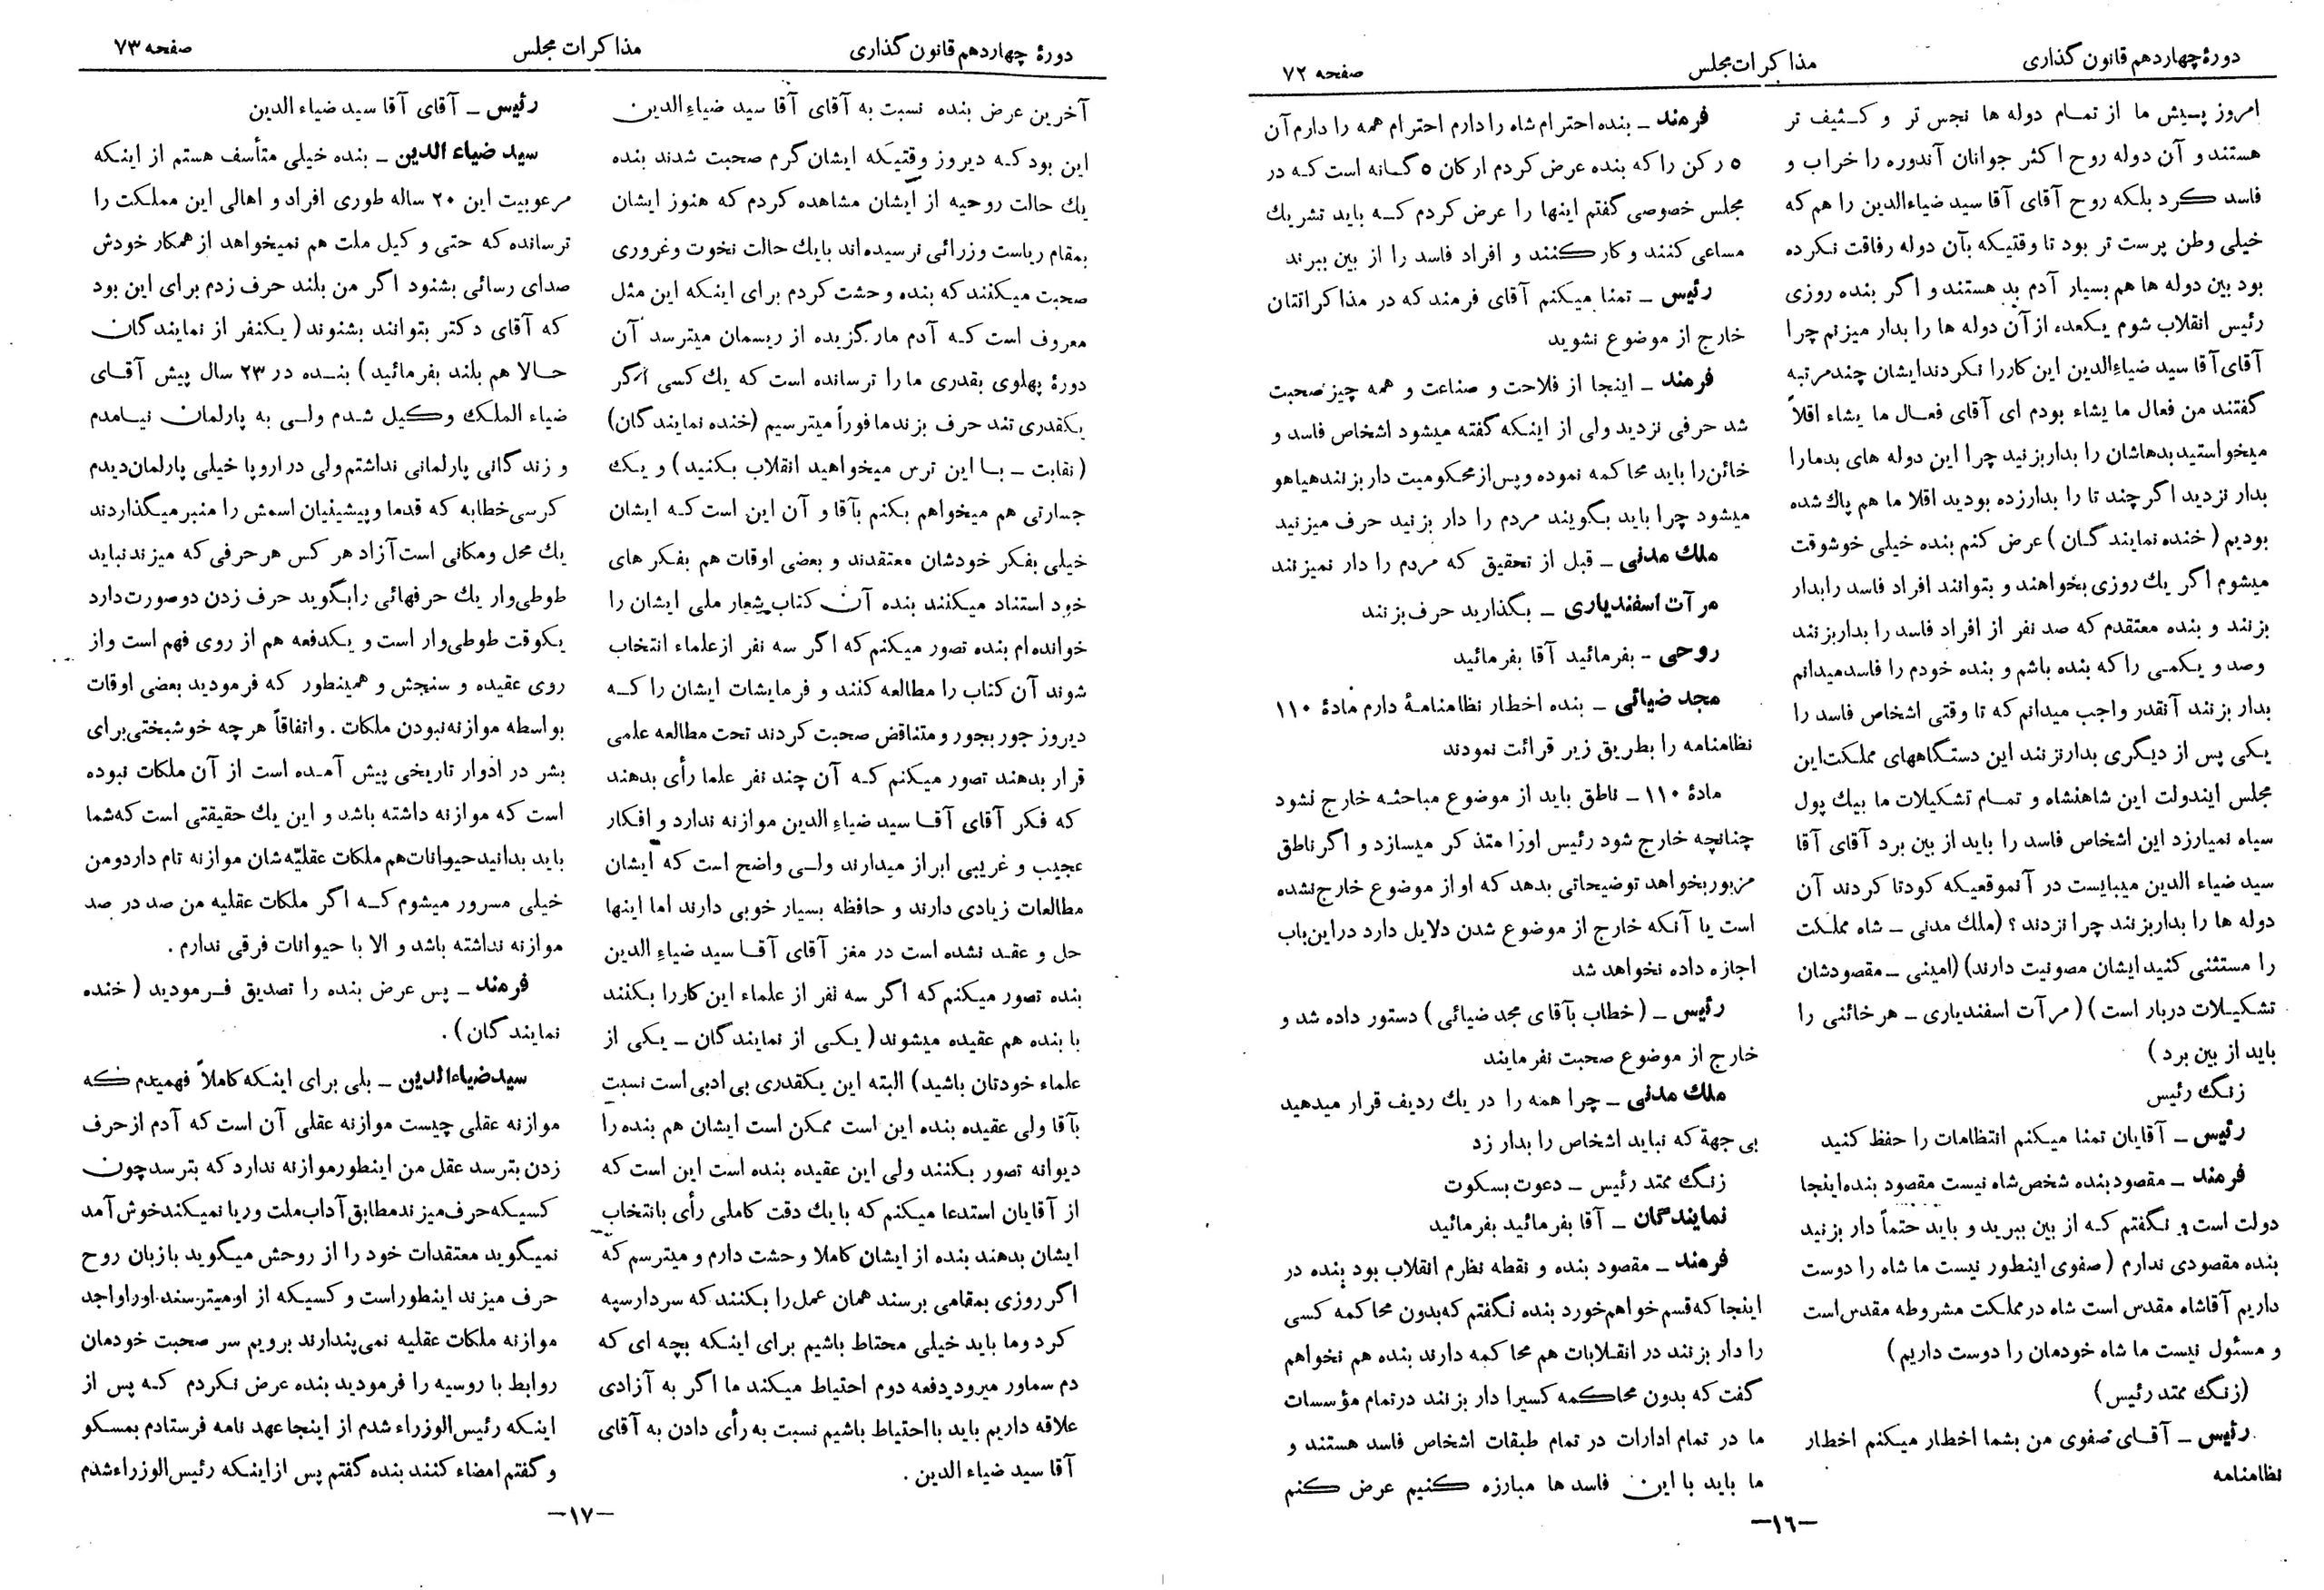 دورهٔ چهاردهم قانون گذاری
مذاکرات مجلس
صفحه ۷۲
امروز پیش ما از تمام دوله ها نجس تر و کثیف تر
هستند و آن دوله روح اکثر جوانان آندوره را خراب و
فاسد کرد بلکه روح آقای آقا سید ضیاءالدین را هم که
خیلی وطن پرست تر بود تا وقتیکه بآن دوله رفاقت نکرده
بود بین دوله ها هم بسیار آدم بد هستند و اگر بنده روزی
رئیس انقلاب شوم یکعده از آن دوله ها را بدار میزنم چرا
آقای آقا سید ضیاءالدین این کار را نکردند ایشان چند مرتبه
گفتند من فعال ما یشاء بودم ای آقای فعال ما یشاء اقلاً
میخواستید بدهاشان را بدار بزنید چرا این دوله های بد ما را
بدار نزدید اگر چند تا را بدار زده بودید اقلا ما هم پاك شده
بودیم (خنده نمایندگان) عرض کنم بنده خیلی خوشوقت
میشوم اگر یك روزی بخواهند و بتوانند افراد فاسد را بدار
بزنند و بنده معتقدم که صد نفر از افراد فاسد را بدار بزنند
وصد و یکمی را که بنده باشم و بنده خودم را فاسد میدانم
بدار بزنند آنقدر واجب میدانم که تا وقتی اشخاص فاسد را
یکی پس از دیگری بدار نزنند این دستگاههای مملکت این
مجلس این دولت این شاهنشاه و تمام تشکیلات ما بیك پول
سیاه نمیارزد این اشخاص فاسد را باید از بین برد آقای آقا
سید ضیاء الدین میبایست در آنموقعیکه کودتا کردند آن
دوله ها را بدار بزنند چرا نزدند ؟ (ملك مدنی ـ شاه مملکت
را مستثنی کنید ایشان مصونیت دارند) (امینی ـ مقصودشان
تشکیلات دربار است) (مرآت اسفندیاری ـ هر خائنی را
باید از بین برد)
زنگ رئیس
رئیس ـ آقایان تمنا میکنم انتظامات را حفظ کنید
فرمند ـ مقصود بنده شخص شاه نیست مقصود بنده اینجا
دولت است و نگفتم که از بین ببرید و باید حتماً دار بزنید
بنده مقصودی ندارم (صفوی اینطور نیست ما شاه را دوست
داریم آقا شاه مقدس است شاه در مملکت مشروطه مقدس است
و مسئول نیست ما شاه خودمان را دوست داریم)
(زنگ ممتد رئیس)
رئیس ـ آقای صفوی من بشما اخطار میکنم اخطار
نظامنامه
فرمند ـ بنده احترام شاه را دارم احترام همه را دارم آن
۵ رکن را که بنده عرض کردم ارکان ۵ گانه است که در
مجلس خصوصی گفتم اینها را عرض کردم که باید تشریك
مساعی کنند و کار کنند و افراد فاسد را از بین ببرند
رئیس ـ تمنا میکنم آقای فرمند که در مذاکراتتان
خارج از موضوع نشوید
فرمند ـ اینجا از فلاحت و صناعت و همه چیز صحبت
شد حرفی نزدید ولی از اینکه گفته میشود اشخاص فاسد و
خائن را باید محاکمه نموده و پس از محکومیت دار بزنند هیاهو
میشود چرا باید بگویند مردم را دار بزنید حرف میزنید
ملك مدنی ـ قبل از تحقیق که مردم را دار نمیزنند
مرآت اسفندیاری ـ بگذارید حرف بزنند
روحی ـ بفرمائید آقا بفرمائید
مجد ضیائی ـ بنده اخطار نظامنامهٔ دارم مادهٔ ۱۱۰
نظامنامه را بطریق زیر قرائت نمودند
مادهٔ ۱۱۰ ـ ناطق باید از موضوع مباحثه خارج نشود
چنانچه خارج شود رئیس اورا متذکر میسازد و اگر ناطق
مزبور بخواهد توضیحاتی بدهد که او از موضوع خارج نشده
است یا آنکه خارج از موضوع شدن دلایل دارد در این باب
اجازه داده نخواهد شد
رئیس ـ (خطاب بآقای مجد ضیائی) دستور داده شد و
خارج از موضوع صحبت نفرمایند
ملك مدنی ـ چرا همه را در یك ردیف قرار میدهید
بی جهة که نباید اشخاص را بدار زد
زنگ ممتد رئیس ـ دعوت بسکوت
نمایندگان ـ آقا بفرمائید بفرمائید
فرمند ـ مقصود بنده و نقطه نظرم انقلاب بود بنده در
اینجا که قسم خواهم خورد بنده نگفتم که بدون محاکمه کسی
را دار بزنند در انقلابات هم محاکمه دارند بنده هم نخواهم
گفت که بدون محاکمه کسیرا دار بزنند در تمام مؤسسات
ما در تمام ادارات در تمام طبقات اشخاص فاسد هستند و
ما باید با این فاسد ها مبارزه کنیم عرض کنم
ـ۱٦ـ
دورهٔ چهاردهم قانون گذاری
مذاکرات مجلس
صفحه ۷۳
آخرین عرض بنده نسبت به آقای آقا سید ضیاءالدین
این بود که دیروز وقتیکه ایشان گرم صحبت شدند بنده
یك حالت روحیه از ایشان مشاهده کردم که هنوز ایشان
بمقام ریاست وزرائی نرسیده اند بایك حالت نخوت وغروری
صحبت میکنند که بنده وحشت کردم برای اینکه این مثل
معروف است که آدم مار گزیده از ریسمان میترسد آن
دورهٔ پهلوی بقدری ما را ترسانده است که یك کسی اگر
یکقدری تند حرف بزند ما فوراً میترسیم (خنده نمایندگان)
(نقابت ـ با این ترس میخواهید انقلاب بکنید) و یك
جسارتی هم میخواهم بکنم بآقا و آن این است که ایشان
خیلی بفکر خودشان معتقدند و بعضی اوقات هم بفکر های
خود استناد میکنند بنده آن کتاب شعار ملی ایشان را
خوانده ام بنده تصور میکنم که اگر سه نفر از علماء انتخاب
شوند آن کتاب را مطالعه کنند و فرمایشات ایشان را که
دیروز جور بجور و متناقض صحبت کردند تحت مطالعه علمی
قرار بدهند تصور میکنم که آن چند نفر علما رأی بدهند
که فکر آقای آقا سید ضیاء الدین موازنه ندارد و افکار
عجیب و غریبی ابراز میدارند ولی واضح است که ایشان
مطالعات زیادی دارند و حافظه بسیار خوبی دارند اما اینها
حل و عقد نشده است در مغز آقای آقا سید ضیاء الدین
بنده تصور میکنم که اگر سه نفر از علماء این کار را بکنند
با بنده هم عقیده میشوند (یکی از نمایندگان ـ یکی از
علماء خودتان باشید) البته این یکقدری بی ادبی است نسبت
بآقا ولی عقیده بنده این است ممکن است ایشان هم بنده را
دیوانه تصور بکنند ولی این عقیده بنده است این است که
از آقایان استدعا میکنم که با یك دقت کاملی رأی بانتخاب
ایشان بدهند بنده از ایشان کاملا وحشت دارم و میترسم که
اگر روزی بمقامی برسند همان عمل را بکنند که سردار سپه
کرد وما باید خیلی محتاط باشیم برای اینکه بچه ای که
دم سماور میرود دفعه دوم احتیاط میکند ما اگر به آزادی
علاقه داریم باید با احتیاط باشیم نسبت به رأی دادن به آقای
آقا سید ضیاء الدین .
رئیس ـ آقای آقا سید ضیاء الدین
سید ضیاء الدین ـ بنده خیلی متأسف هستم از اینکه
مرعوبیت این ۲۰ ساله طوری افراد و اهالی این مملکت را
ترسانده که حتی وکیل ملت هم نمیخواهد از همکار خودش
صدای رسائی بشنود اگر من بلند حرف زدم برای این بود
که آقای دکتر بتوانند بشنوند (یکنفر از نمایندگان
حالا هم بلند بفرمائید) بنده در ۲۳ سال پیش آقای
ضیاء الملك وکیل شدم ولی به پارلمان نیامدم
و زندگانی پارلمانی نداشتم ولی در اروپا خیلی پارلمان دیدم
کرسی خطابه که قدما و پیشینیان اسمش را منبر میگذاردند
یك محل ومکانی است آزاد هر کس هر حرفی که میزند نباید
طوطی وار یك حرفهائی را بگوید حرف زدن دو صورت دارد
یکوقت طوطی وار است و یکدفعه هم از روی فهم است و از
روی عقیده و سنجش و همینطور که فرمودید بعضی اوقات
بواسطه موازنه نبودن ملکات . واتفاقاً هر چه خوشبختی برای
بشر در ادوار تاریخی پیش آمده است از آن ملکات نبوده
است که موازنه داشته باشد و این یك حقیقتی است که شما
باید بدانید حیوانات هم ملکات عقلیّه شان موازنه تام دارد ومن
خیلی مسرور میشوم که اگر ملکات عقلیه من صد در صد
موازنه نداشته باشد و الا با حیوانات فرقی ندارم .
فرمند ـ پس عرض بنده را تصدیق فرمودید (خنده
نمایندگان) .
سید ضیاءالدین ـ بلی برای اینکه کاملاً فهمیدم که
موازنه عقلی چیست موازنه عقلی آن است که آدم از حرف
زدن بترسد عقل من اینطور موازنه ندارد که بترسد چون
کسیکه حرف میزند مطابق آداب ملت و ریا نمیکند خوش آمد
نمیگوید معتقدات خود را از روحش میگوید با زبان روح
حرف میزند اینطور است و کسیکه از او میترسند او را واجد
موازنه ملکات عقلیه نمی پندارند برویم سر صحبت خودمان
روابط با روسیه را فرمودید بنده عرض نکردم که پس از
اینکه رئیس الوزراء شدم از اینجا عهد نامه فرستادم بمسکو
و گفتم امضاء کنند بنده گفتم پس از اینکه رئیس الوزراء شدم
ـ۱۷ـ